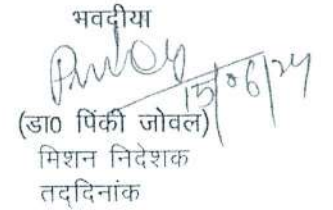 भवदीया
15/06/24
(डा0 पिंकी जोवल)
मिशन निदेशक
तद्दिनांक